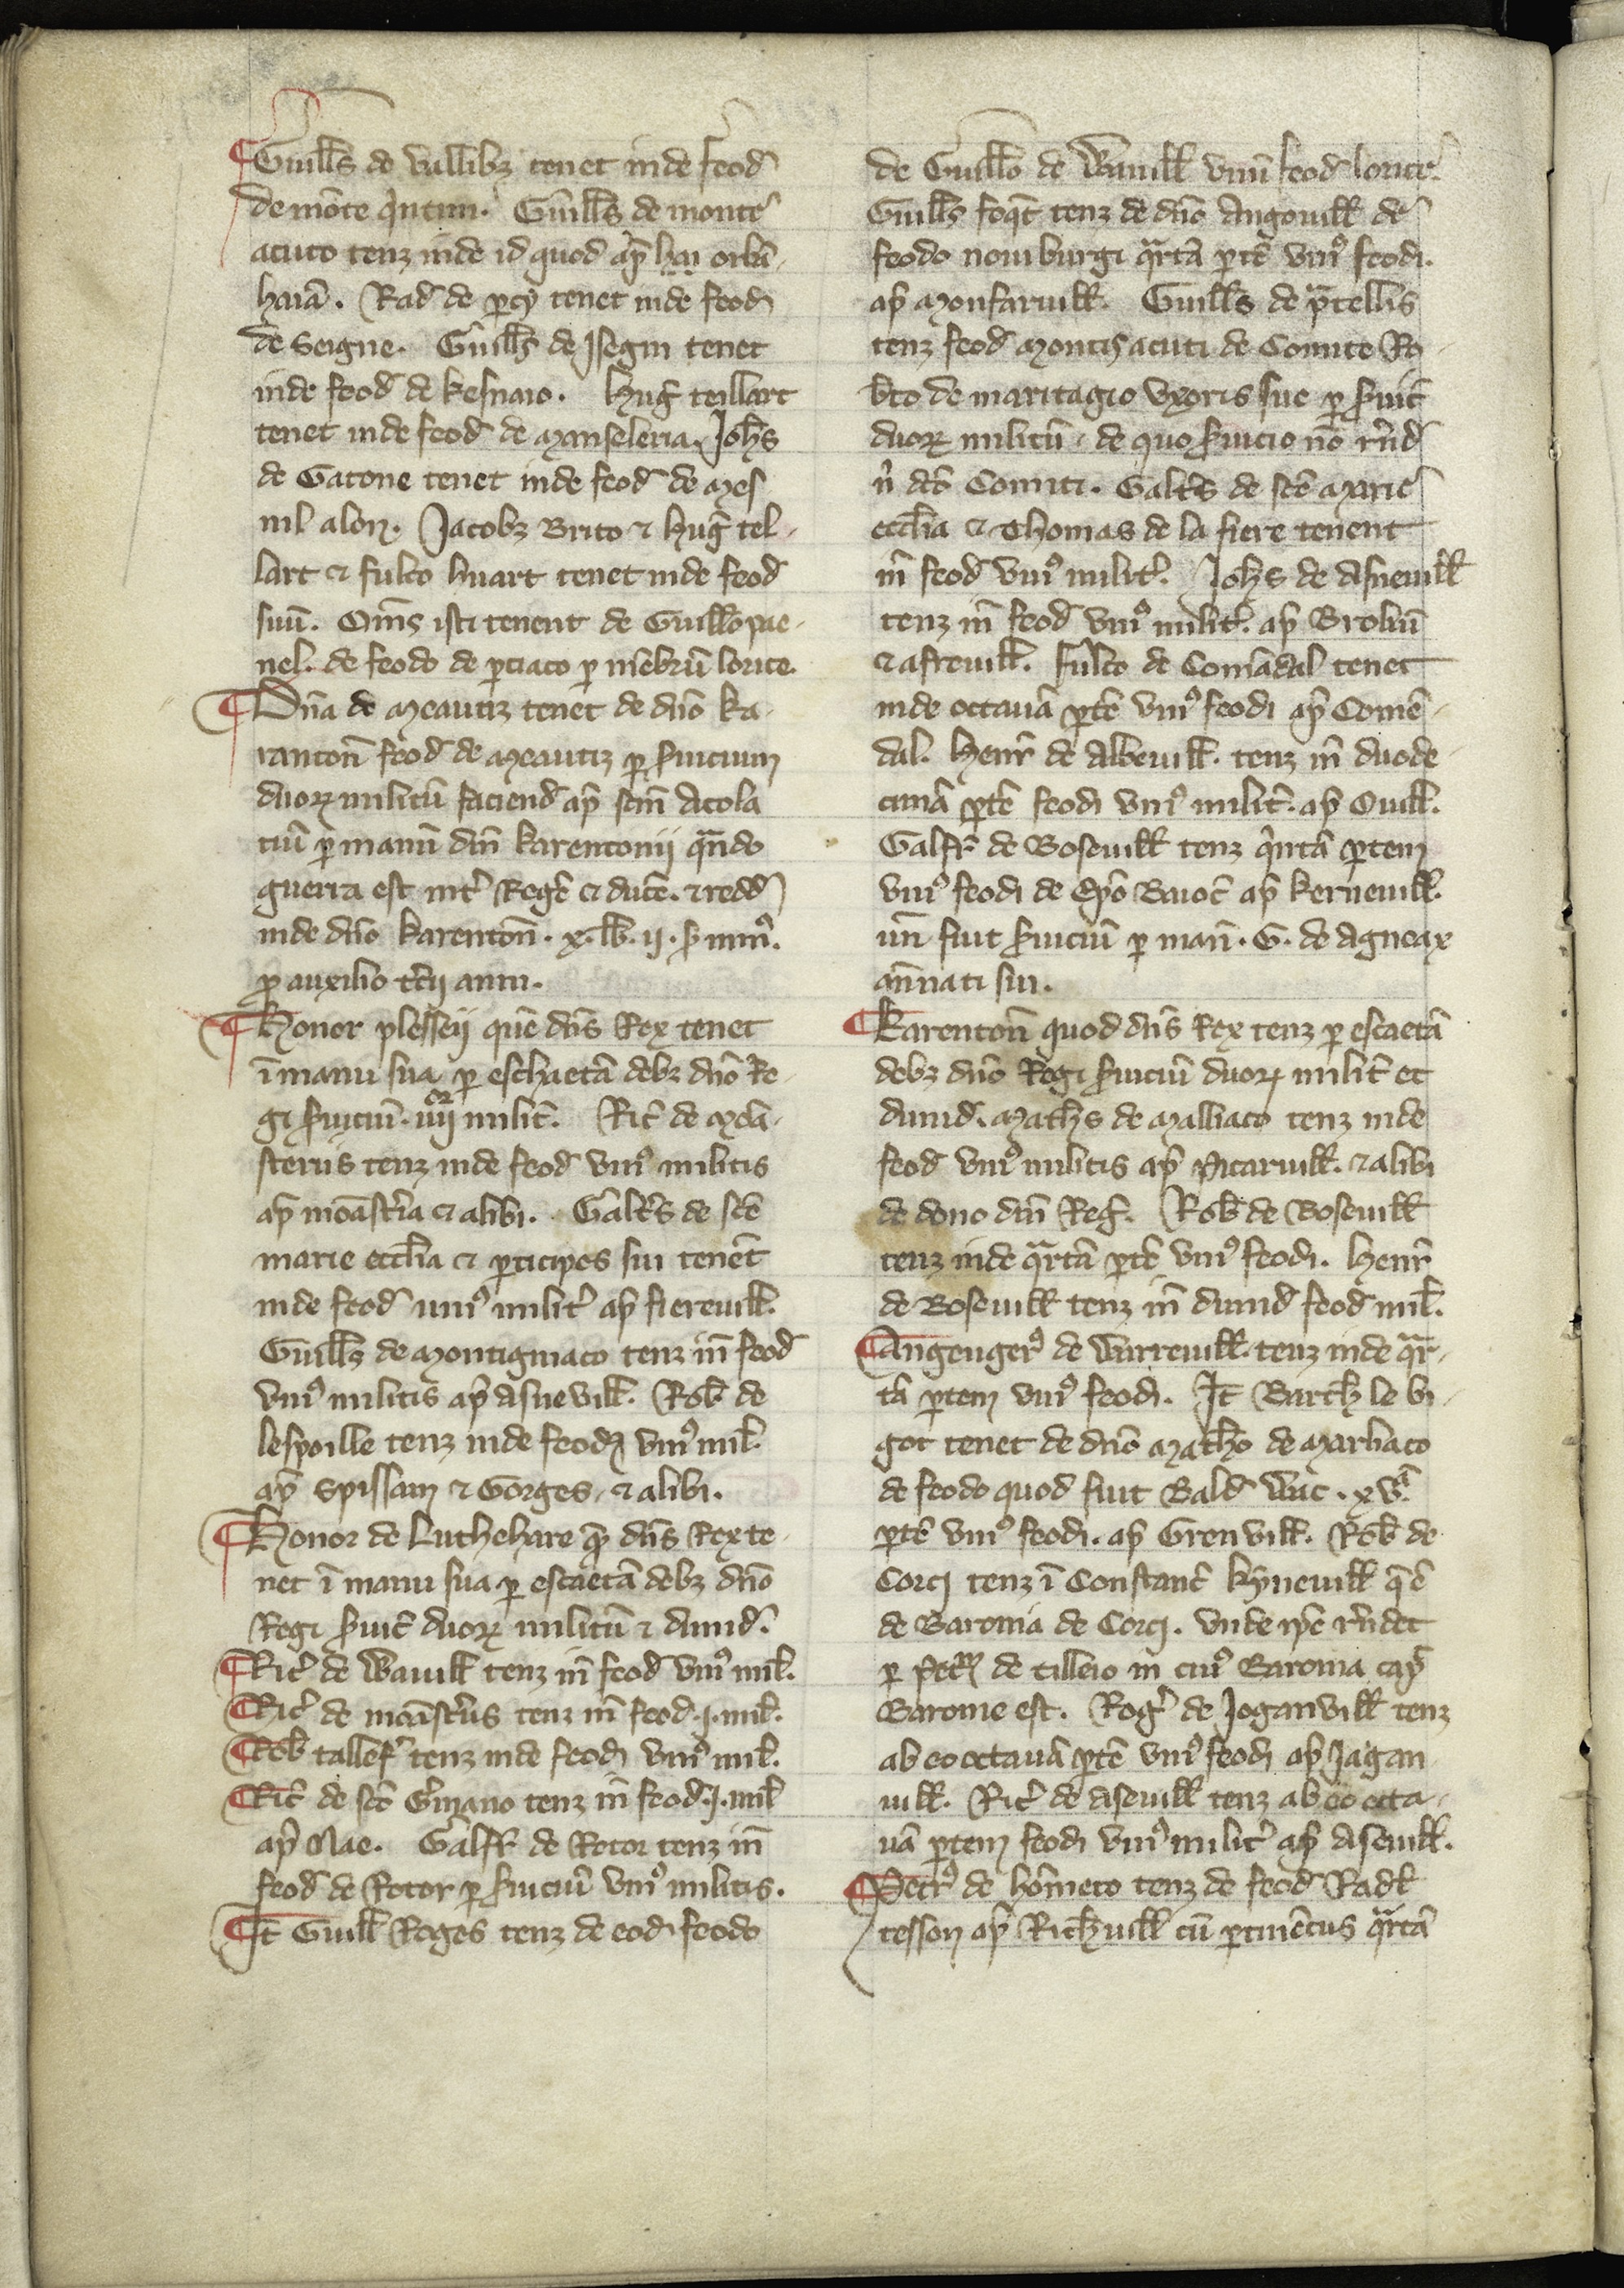 Guill̄s de vallibꝫ tenet inde feod̄
de mōte q̇ntin. Guill̄s de monte
acuto tenꝫ inde id quod ap̄ hai orlā
haiā. Rad̄ de ꝑcy tenet inde feod̄
de Seigne. Guill̄s de Isegni tenet
inde feod̄ de kesnaio. huḡ teillart
tenet inde feod̄ de Manseleria. Joh̄s
de Gatone tenet inde feod̄ de Mes
nil aloꝝ. Jacobꝫ Brito ⁊ huḡ tel-
lart ⁊ fulco huart tenet inde feod̄
suū. Om̄s isti tenent de Guill̄o pae-
nel. de feodo de ꝑciaco ꝑ mēbrū lorice.
Dn̄a de Meautiz tenet de dn̄o ka-
rantoñ feod̄ de Meautiz ꝑ s̄uicium
duoꝝ militū faciend̄ ap̄ scm̄ Acola
tiū ꝑ manū dn̄i karentonii qn̄do
guerra est int̄ Regē ⁊ ducē. ⁊ redd̄
inde dn̄o karentoñ. x. lb̄. ii. s̄ min⁹.
ꝓ auxilio t̄cii anni.
Honor plesseii quē dn̄s Rex tenet
ī manu sua ꝑ eschaetā debꝫ dn̄o Re-
gi s̄uiciū. iiij or milit̄. Ric̄ de Mōa-
steriis tenꝫ inde feod̄ vni⁹ militis
ap̄ mōast̄ia ⁊ alibi. Galt̄s de sc̄e
marie eccl̄ia ⁊ ꝑticipes sui tenēt
inde feod̄ uni⁹ milit̄ ap̄ fiereuill̄.
Guill̄s de Montigniaco tenꝫ in̄ feod̄
vni⁹ militis ap̄ Asnevill̄. Rob̄ de
lespoille tenꝫ inde feod̄ vni⁹ mil̄.
ap̄ Spissam ⁊ Gorges. ⁊ alibi.
Honor de Luthehare qē dn̄s Rex te-
net ī manu sua ꝑ escaetā debꝫ dn̄o
Regi s̄uic̄ duoꝝ militū ⁊ dimid̄.
Ric̄ de Wauill̄ tenꝫ in̄ feod̄ vni⁹ mil̄.
Ric̄ de monast̄iis tenꝫ in̄ feod̄. j. mil̄.
Rob̄ tallef̄ tenꝫ inde feod̄ vni⁹ mil̄.
Ric̄ de sc̄o Ḡmano tenꝫ in̄ feod̄. j. mil̄
ap̄ Nae. Galfr̄ de Rotor tenꝫ in̄
feod̄ de Rotor ꝑ s̄uiciū vni⁹ militis.
It̄ Guill̄ Roges tenꝫ de eod̄ feodo
de Guill̄o de Wauill̄ vnū feod̄ loric̄.
Guill̄s foq̄t tenꝫ de dn̄o Angouill̄ de
feodo noui burgi qr̄tā ꝑtē vni⁹ feodi.
ap̄ Monfaruill̄. Guill̄s de pratellis
tenꝫ feod̄ Montis acuti de Comite Ro-
b̄to de maritagio vxoris sue ꝑ s̄uic̄
duoꝝ militū. de quo s̄uicio nō r̄nd̄
ñ dc̄o Comiti. Galt̄s de sc̄e Marie
eccl̄ia ⁊ Thomas de la fiere tenent
in̄ feod̄ vni⁹ milit̄. Joh̄s de Asneuill̄
tenꝫ in̄ feod̄ vni⁹ milit̄. ap̄ Broliū
⁊ afreuill̄. fulco de Comādal tenet
inde octauā ꝑtē vni⁹ feodi ap̄ Comē-
dal. Henr̄ de Albeuill̄. tenꝫ in̄ duode-
cimā ꝑtē feodi vni⁹ milit̄. ap̄ Ouill̄.
Galfr̄ de Boseuill̄ tenꝫ q̇ntā ꝑtem
vni⁹ feodi de Ep̄o Baioc̄ ap̄ kerneuill̄.
un̄ fuit s̄uiciū ꝑ man̄. G. de Agneax
ān̄nati sui.
Karentoñ quod dn̄s Rex tenꝫ ꝑ escaetā
debꝫ dn̄o Regi s̄uiciū duoꝝ milit̄ et
dimid̄. Math̄s de Malliaco tenꝫ inde
feod̄ vni⁹ militis ap̄ Picaruill̄. ⁊ alibi
de dono dn̄i Reḡ. Rob̄ de Boseuill̄
tenꝫ inde qr̄tā ꝑtē vni⁹ feodi. Henr̄
de Boseuill̄ tenꝫ in̄ dimid̄ feod̄ mil̄.
Angenger⁹ de Warreuill̄. tenꝫ inde qr̄-
tā ꝑtem vni⁹ feodi. It̄ Barth̄ le bi-
got tenet de dn̄o Math̄o de Marliaco
de feodo quod fuit Bald̄ Wac. xvͣ.
ꝑtē vni⁹ feodi. ap̄ Grenvill̄. Rob̄ de
Corci tenꝫ ī Constanc̄ kyneuill̄ q̄ ē
de Baronia de Corci. vnde ip̄e r̄ndet
ꝑ Petr̄ de tilleio in cui⁹ Baronia cap̄
Baronie est. Roḡ de Joganvill̄ tenꝫ
ab eo octauā ꝑtē vni⁹ feodi ap̄ Jagan
uill̄. Ric̄ de Aseuill̄ tenꝫ ab eo octa-
uā ꝑtem feodi vni⁹ milit̄ ap̄ Aseuill̄.
Petr⁹ de hom̄eto tenꝫ de feod̄ Radl̄
tesson ap̄ Rich̄uill̄ cū ꝑtinēciis qr̄tā